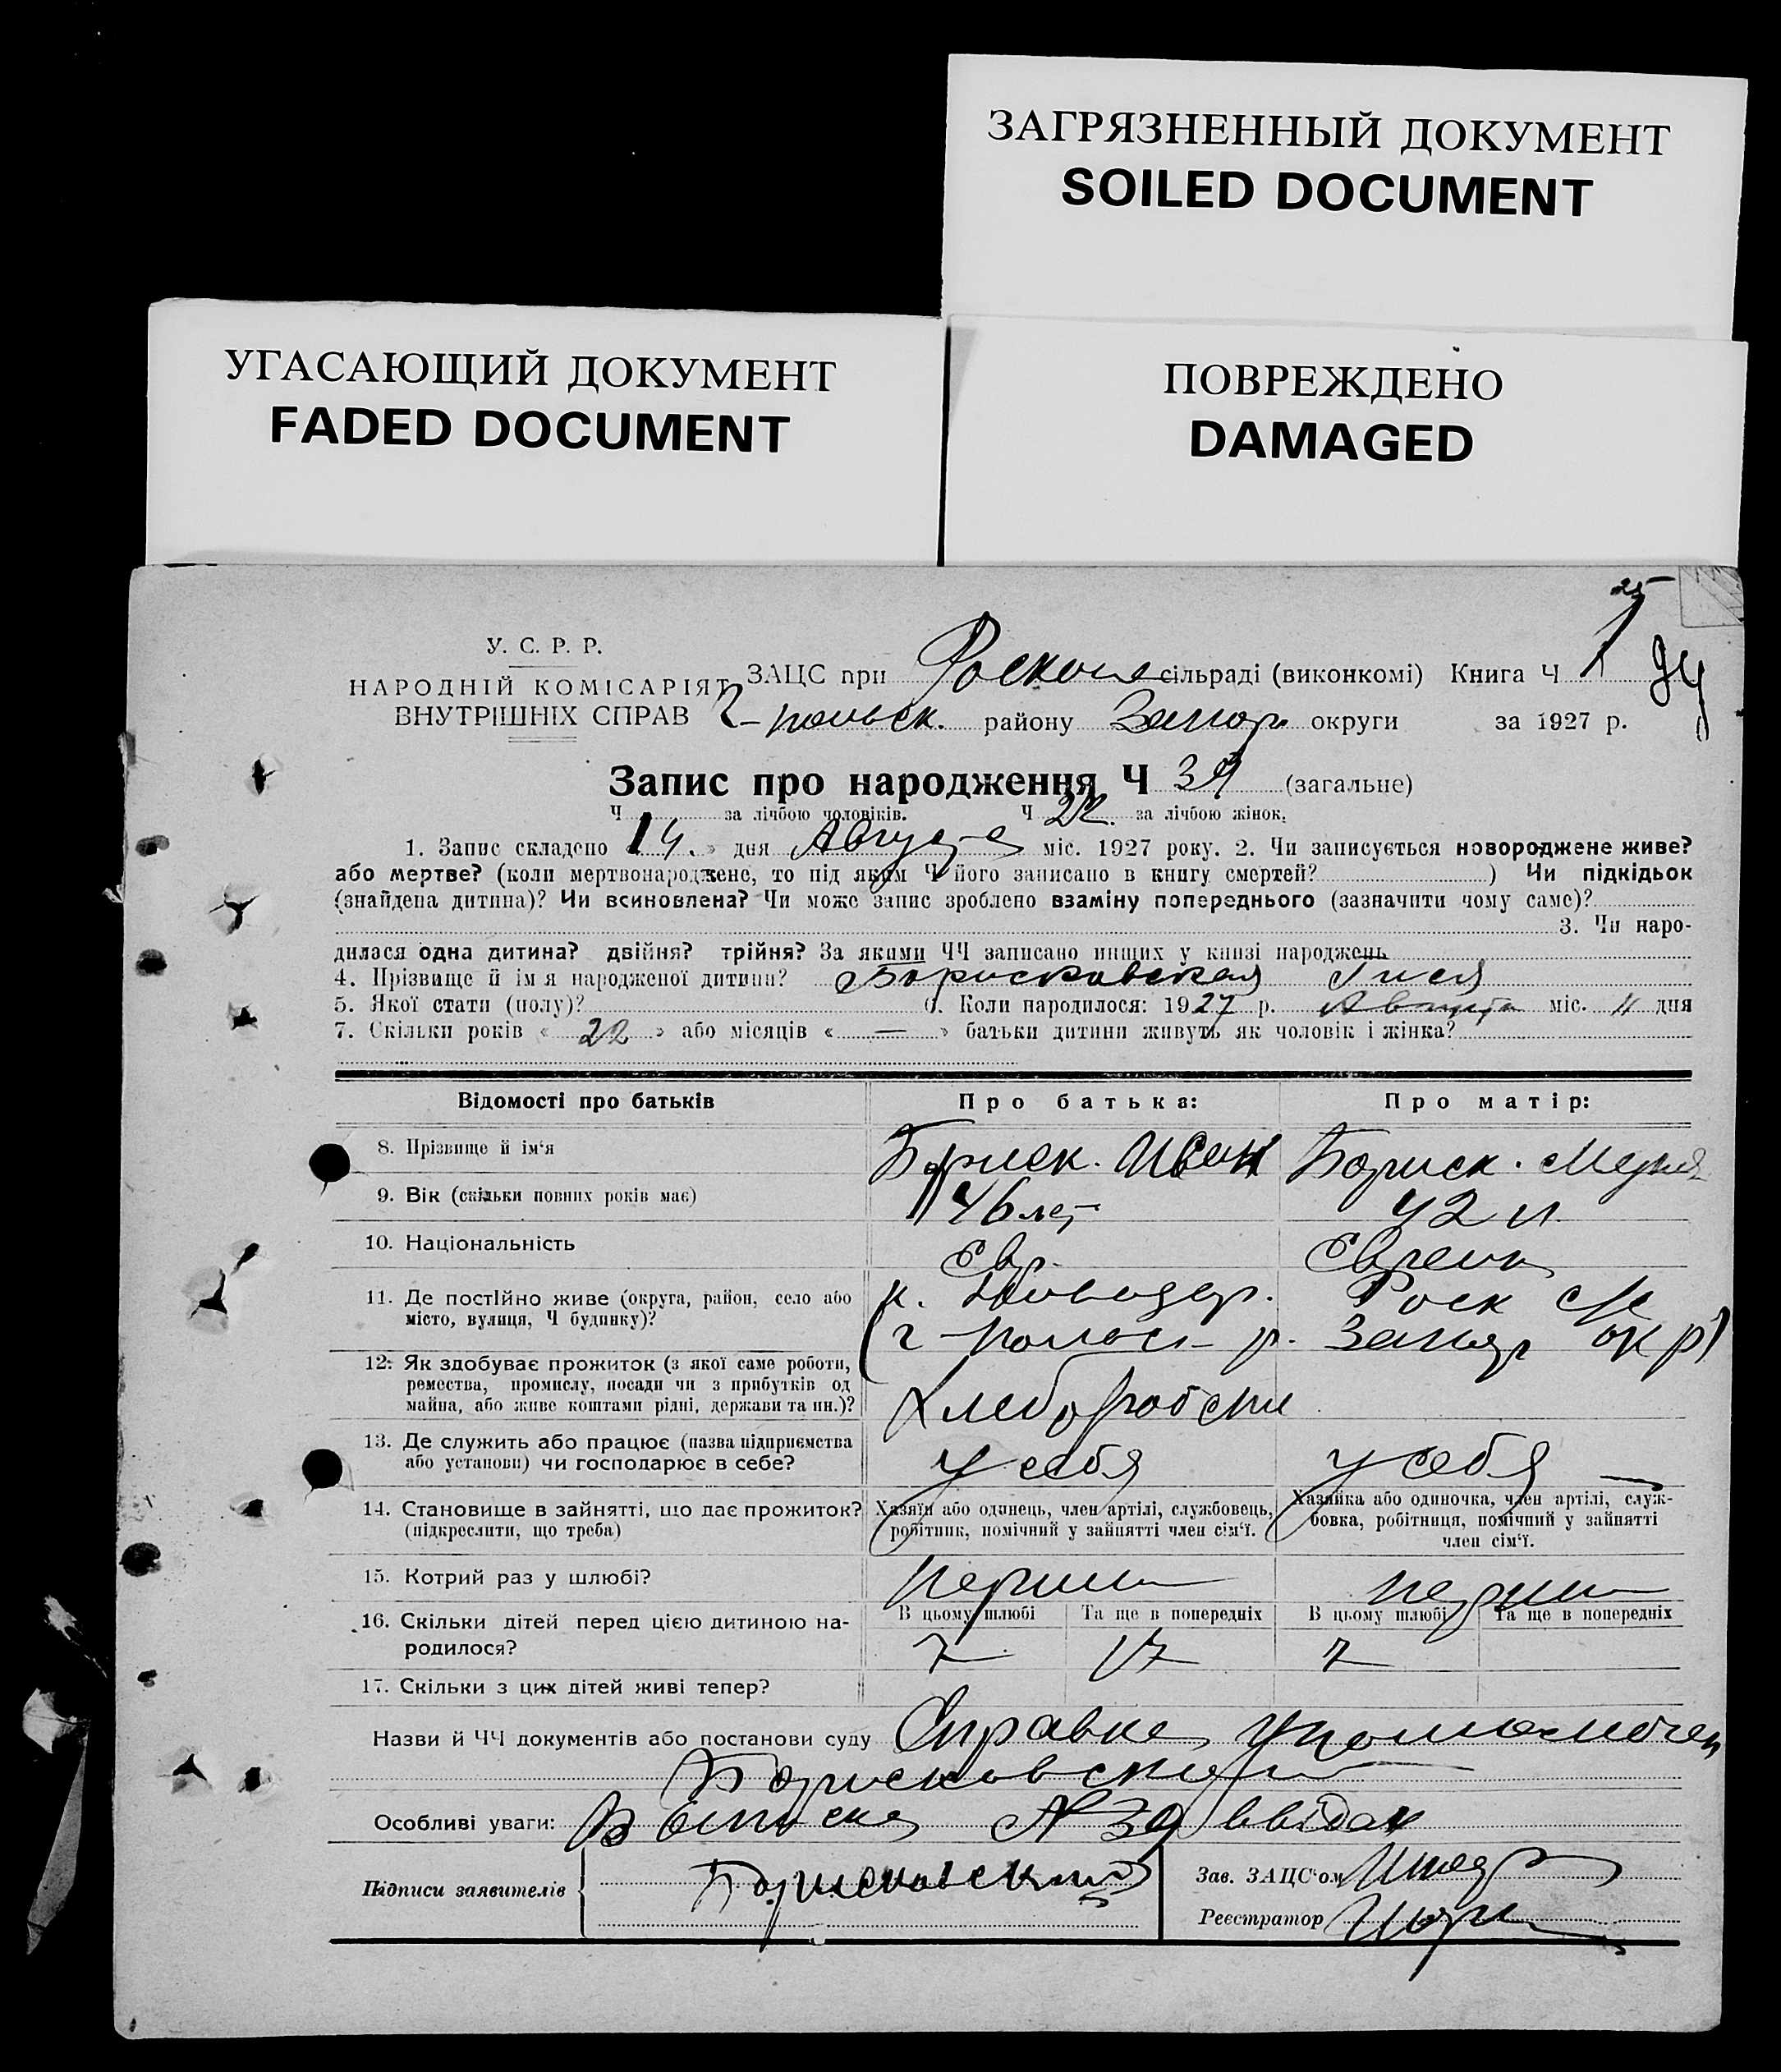 ЗАГРЯЗНЕННЫЙ ДОКУМЕНТ
SOILED DOCUMENT
УГАСАЮЩИЙ ДОКУМЕНТ
FADED DOCUMENT
ПОВРЕЖДЕНО
DAMAGED
25
У. С. Р. Р.
НАРОДНІЙ КОМІСАРІЯТ
ВНУТРІШНІХ СПРАВ
ЗАЦС при сільраді (виконкомі) Книга Ч 1
району Запор округи за 1927 р.
Запис про народження Ч 39 (загальне)
Ч за лічбою чоловіків. Ч 22. за лічбою жінок.
1. Запис складено 14. » дня Августа міс. 1927 року. 2. Чи записується новороджене живе?
або мертве? (коли мертвонароджене, то під яким Ч його записано в книгу смертей? ) Чи підкідьок
(знайдена дитина)? Чи всиновлена? Чи може запис зроблено взаміну попереднього (зазначити чому саме)?
3. Чи наро-
дилася одна дитина? двійня? трійня? За якими ЧЧ записано инших у книзі народжень
4. Прізвище й ім я народженої дитини? Борисковская Гися
5. Якої стати (полу)? 6. Коли народилося: 1927 р. Августа міс. 11 дня
7. Скільки років « 22 » або місяців « — » батьки дитини живуть як чоловік і жінка?
Відомості про батьків Про батька: Про матір:
8. Прізвище й ім‘я Бориск. Иван Бориск.
9. Вік (скільки повних років має) 46 лет 42 л.
10. Національність Евр. Еврейк
11. Де постійно живе (округа, район, село або
місто, вулиця, Ч будинку)?
к. Роск с/с
р. Запор окр)
12. Як здобуває прожиток (з якої саме роботи,
ремества, промислу, посади чи з прибутків од
майна, або живе коштами рідні, держави та ин.)?
13. Де служить або працює (назва підприємства
або установи) чи господарює в себе?
у себя у себя —
14. Становище в зайнятті, що дає прожиток?
(підкреслити, що треба)
Хазяїн або одинець, член артілі, службовець,
робітник, помічний у зайнятті член сім‘ї.
Хазяйка або одиночка, член артілі, служ-
бовка, робітниця, помічний у зайнятті
член сім‘ї.
15. Котрий раз у шлюбі?
16. Скільки дітей перед цією дитиною на-
родилося?
В цьому шлюбі Та ще в попередніх В цьому шлюбі Та ще в попередніх
7 7
17. Скільки з цих дітей живі тепер?
Назви й ЧЧ документів або постанови суду Справка
Особливі уваги: Выписка № 39
Підписи заявителів Борисковский
Зав. ЗАЦС‘ом
Реєстратор